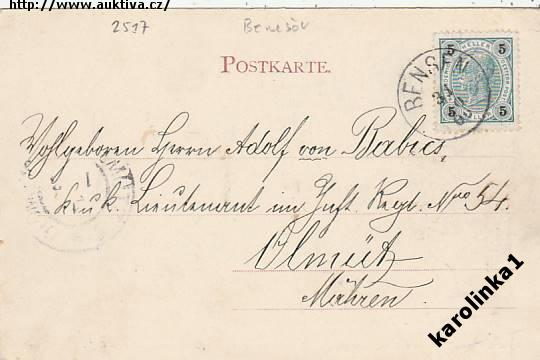 http://www.auktiva.cz/
2517 Benešov
POSTKARTE.
5 HELLER 5
5 5
BENSEN
Wohlgeboren Herrn Adolf von Babics,
k. u. k. Lieutenant im Inft. Regt. Nro 54.
Olmütz
Mähren.
karolinka1